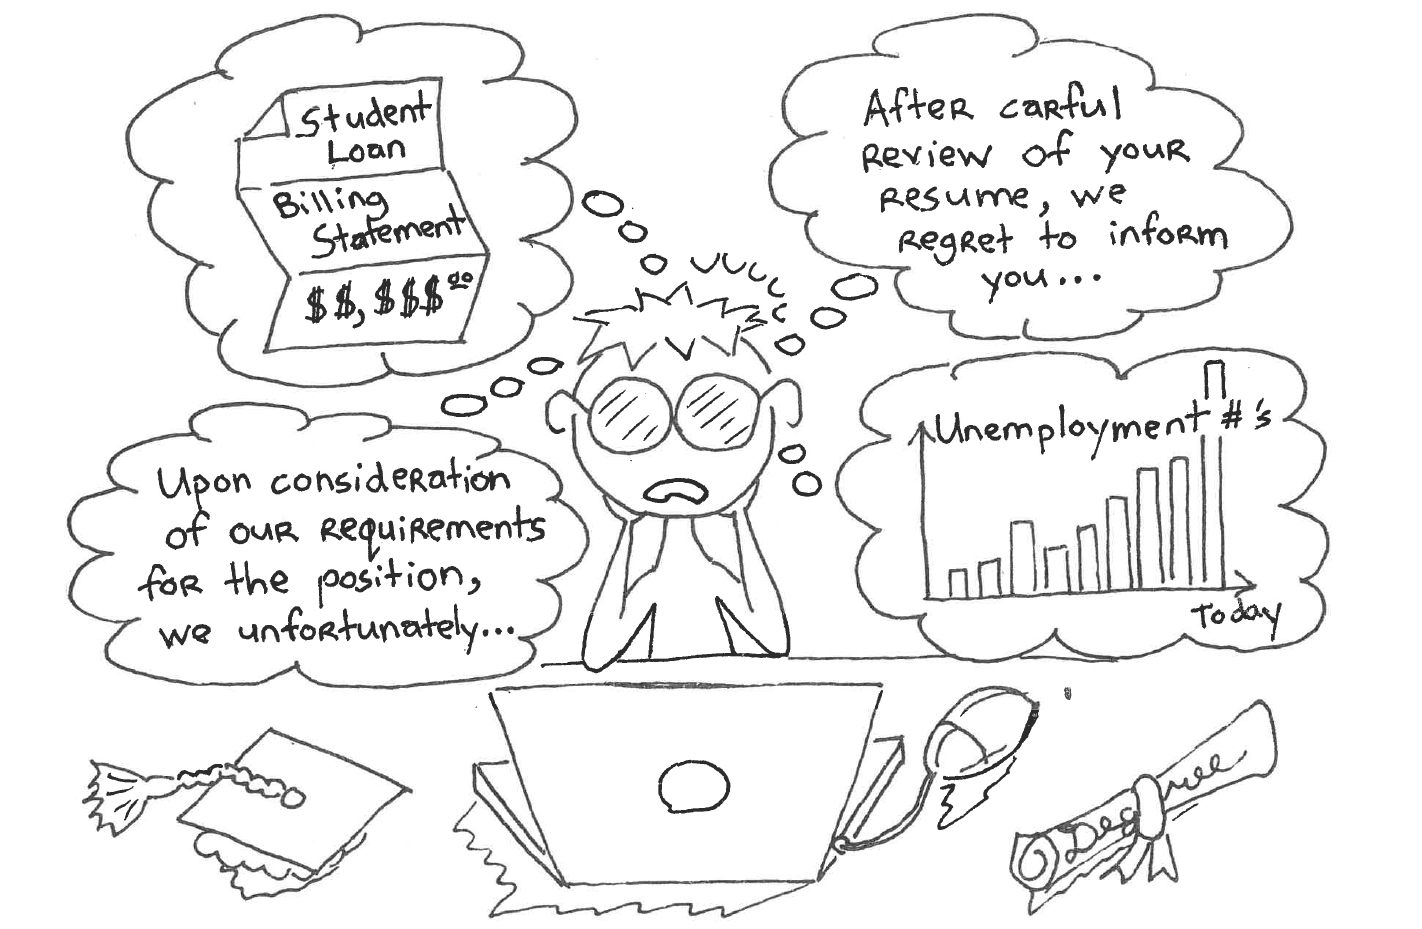 Student
Loan
Billing
Statement
$$,$$$.00
After carful
review of your
resume, we
regret to inform
you...
Upon consideration
of our requirements
for the position,
we unfortunately...
Unemployment #'s
Today
Degree